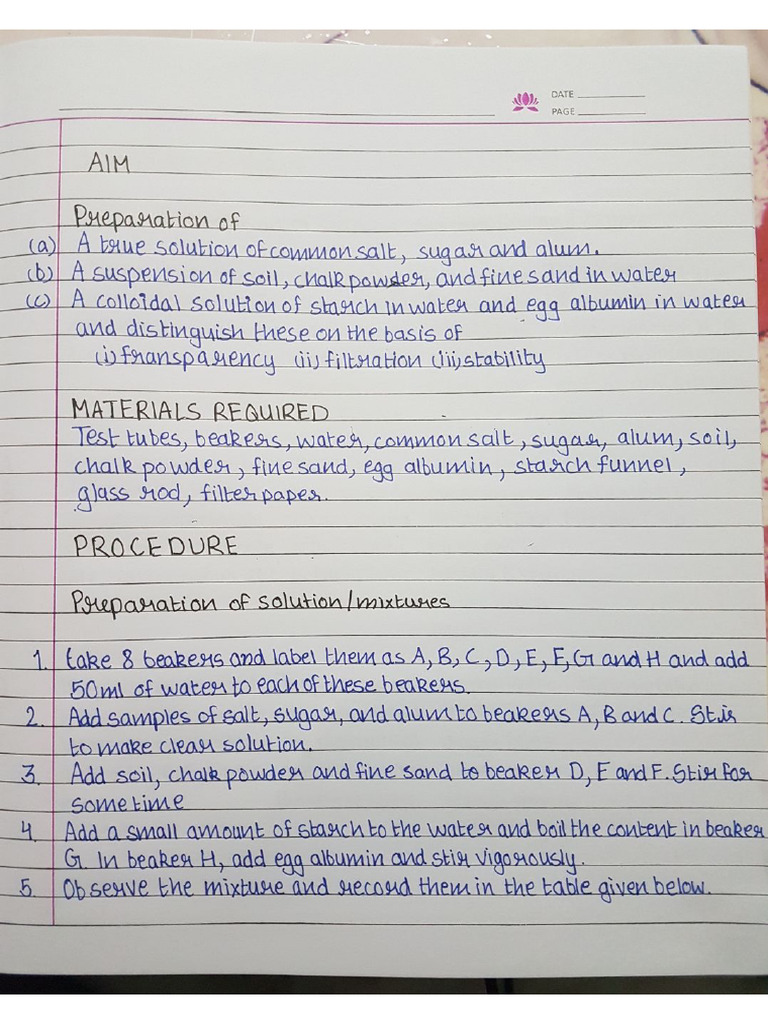 DATE
PAGE
AIM
Preparation of
(a) A true solution of common salt, sugar and alum.
(b) A suspension of soil, chalk powder, and fine sand in water
(c) A colloidal solution of starch in water and egg albumin in water
and distinguish these on the basis of
(i) transparency (ii) filtration (iii) stability
MATERIALS REQUIRED
Test tubes, beakers, water, common salt, sugar, alum, soil,
chalk powder, fine sand, egg albumin, starch funnel,
glass rod, filter paper.
PROCEDURE
Preparation of solution/mixtures
1. take 8 beakers and label them as A, B, C, D, E, F, G and H and add
50ml of water to each of these beakers.
2. Add samples of salt, sugar, and alum to beakers A, B and C. Stir
to make clear solution.
3. Add soil, chalk powder and fine sand to beaker D, E and F. Stir for
some time
4. Add a small amount of starch to the water and boil the content in beaker
G. In beaker H, add egg albumin and stir vigorously.
5. Observe the mixture and record them in the table given below.